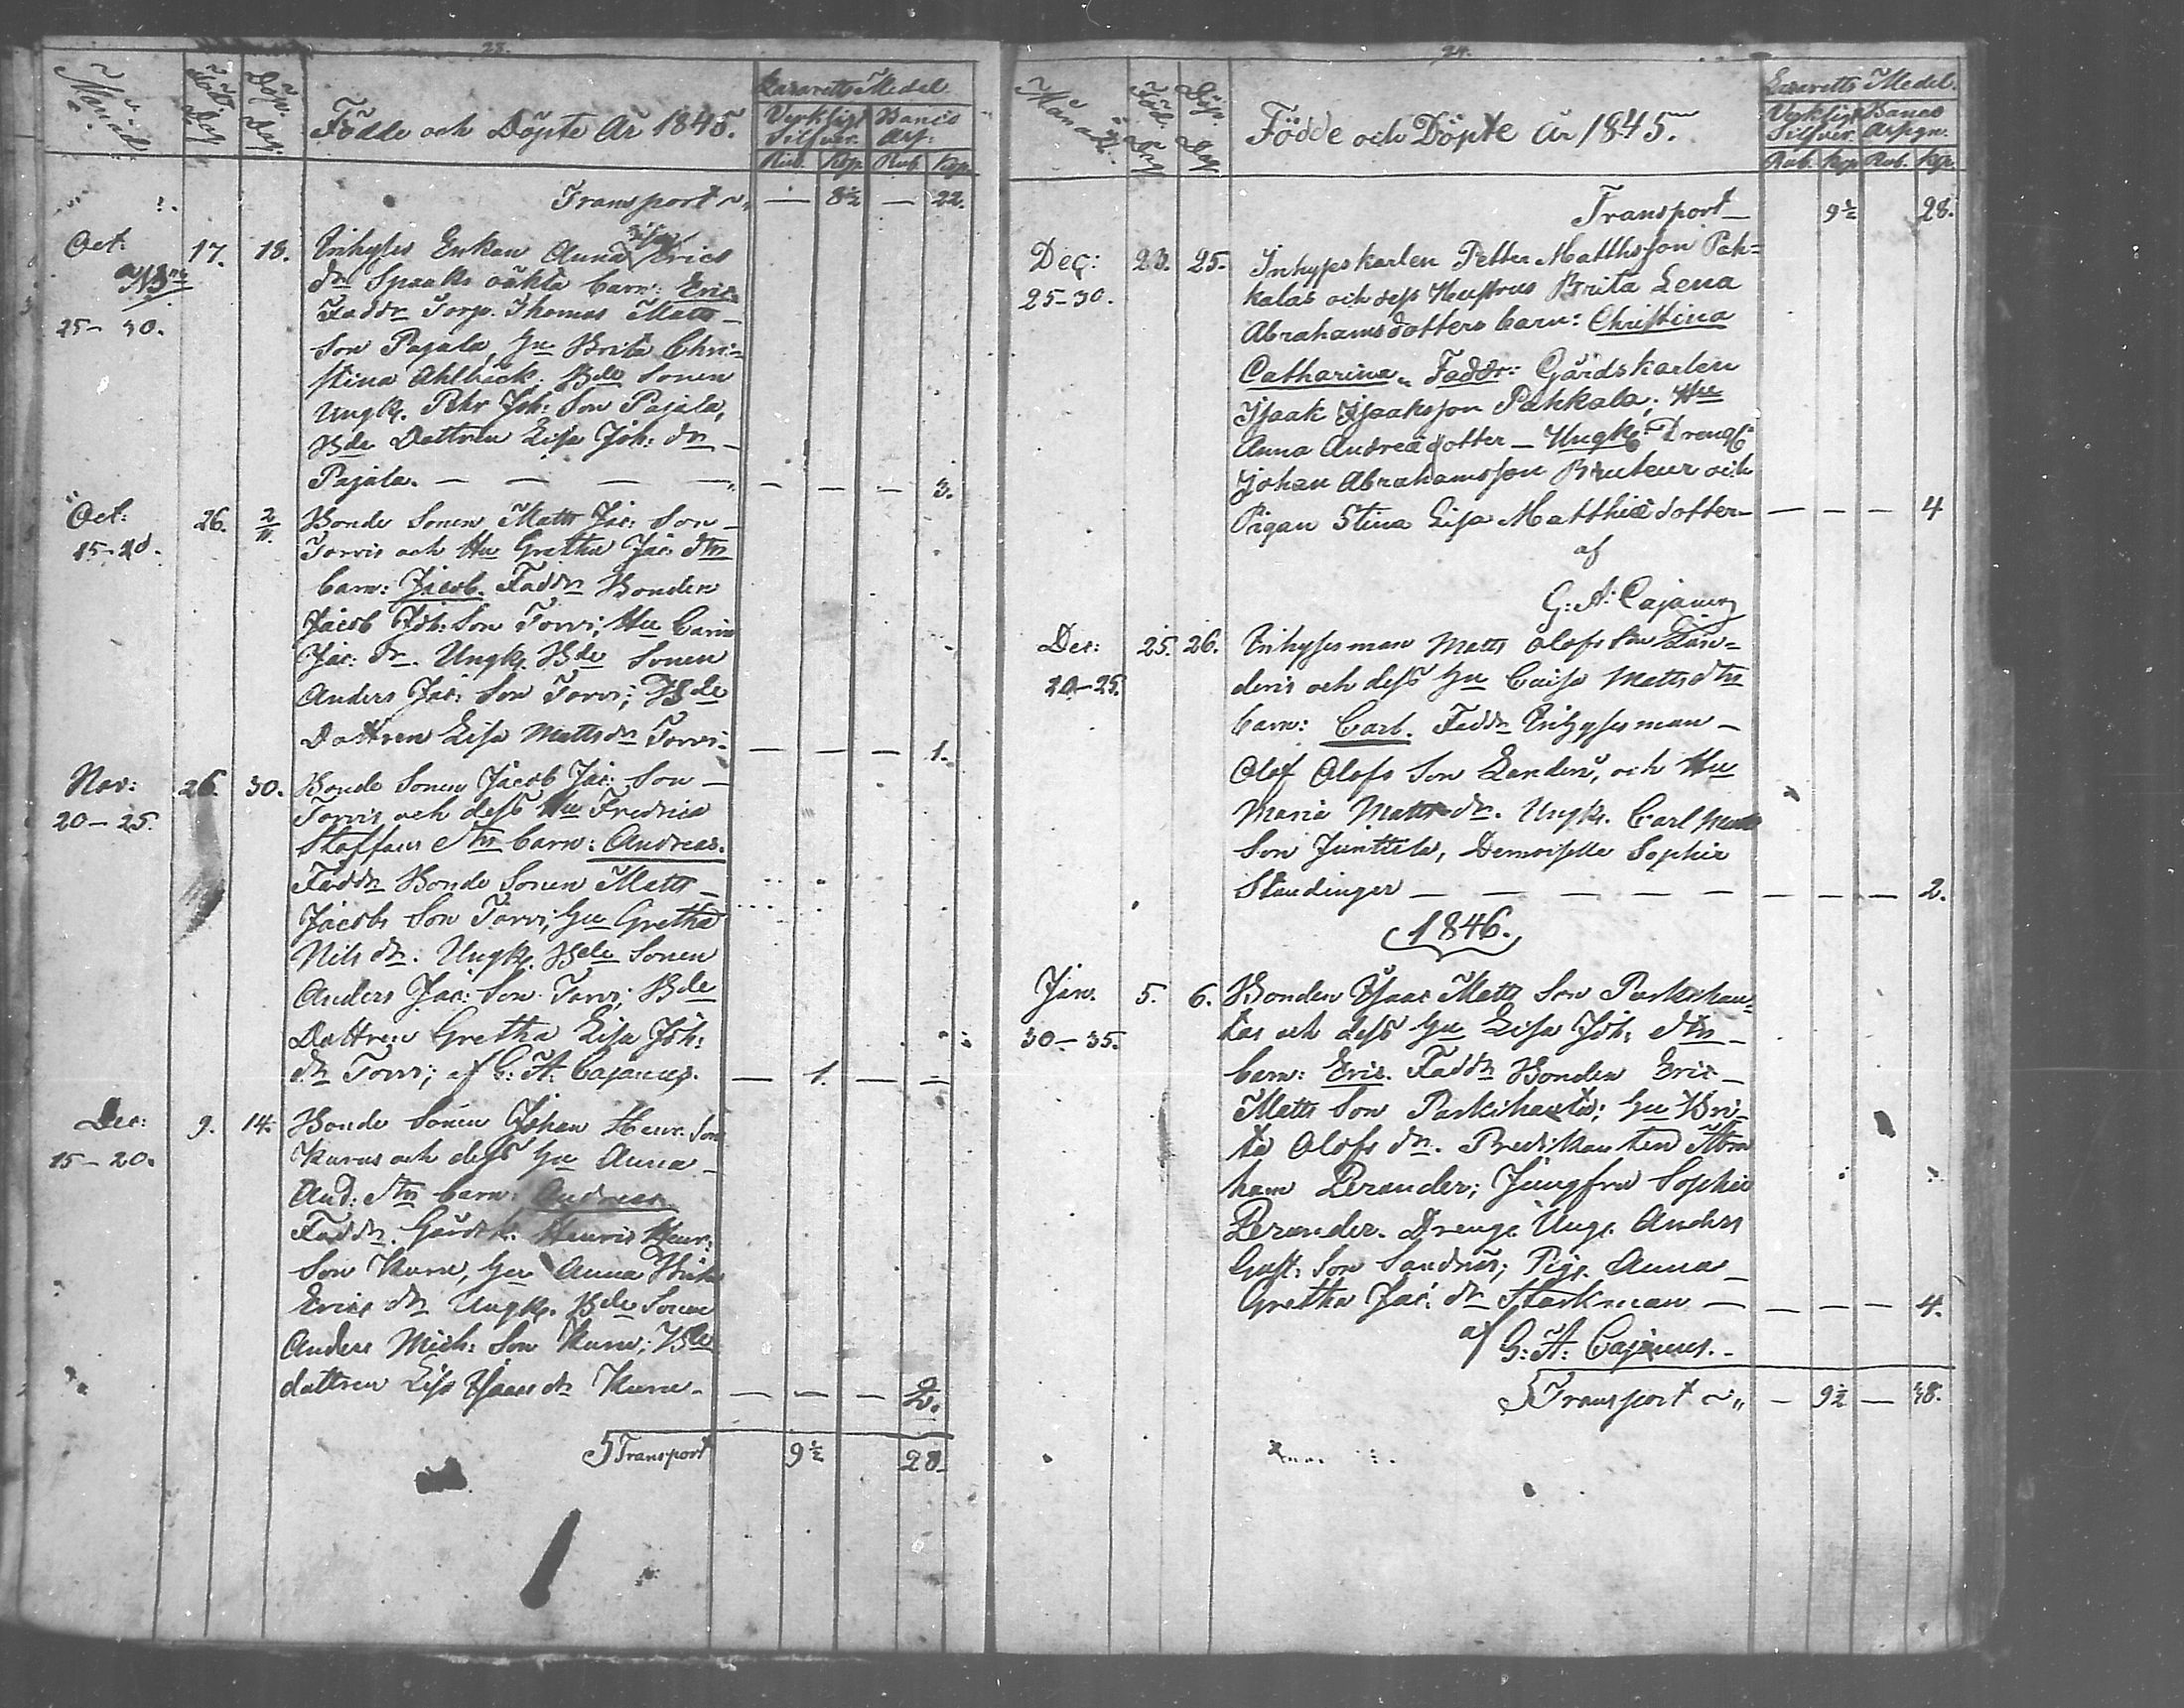 23.
Månad
Föd. Dag
Döp. Dag.
Födde och Döpte År 1845.
Lazaretts Medel
Verkligt Silfver. Banco Ass:
Rub. Kop. Rub. Kop.
Transport — 8½ — 22.
Oct: 17. 18. Inhyses Enkan Anna Erics
NB
25-30.
dr Spaaks oäkta barn: Eric.
Faddr Torp. Thomas Matts
Son Pajala, Hu Brita Chri-
stina Ahlbäck. Bde Sonen
Ungk. Pehr Joh: Son Pajala,
Bde Dottren Lisa Joh: dr
Pajala. — — — — — — — 3.
Oct: 26. 2/11. Bonde Sonen Matts Jac: Son
15-20.
Torvis och Hu Gretha Jac: dtrs
barn: Jacob. Faddr Bonden
Jacob Joh: Son Torvi; Hu Carin
Jac: dr. Ungk. Bde Sonen
Anders Jac: Son Torvi; Bde
Dottren Lisa Mattsdr Torvi — — — 1.
Nov: 26. 30. Bonde Sonen Jacob Jac: Son
20-25.
Torvis och dess Hu Fredrica
Staffans dtrs barn: Andreas.
Faddr Bonde Sonen Matts
Jacobs Son Torvi; Hu Gretha
Nils dr: Ungk. Bde Sonen
Anders Jac: Son Torvi; Bde
Dottren Gretha Lisa Joh:
dr Torvi; af G: A: Cajanus. — 1. — —
Dec: 9. 14. Bonde Sonen Johan Henr: Son
15-20.
Kurus och dess Hu Anna
And: dtrs barn: Andreas
Faddr. Gårdsk. Henric Henr:
Son Kuru, Hu Anna Brita
Erics dr Ungk. Bde Sonen
Anders Mich: Son Kuru; Bde
dottren Lisa Isaacs dr Kuru. — — — 2.
Transport 9½ 28.
24.
Månad.
Föd. Dag
Döp. Dag
Födde och Döpte År 1845.
Lazaretts Medel.
Verkligt Silfver. Banco Assgn.
Rub. Kop. Rub. Kop.
Transport — 9½ 28.
Dec: 23. 25. Inhyses karlen Petter Matthsson Pak-
25-30.
kalas och dess Hustrus Brita Lena
Abrahamsdotters barn: Christina
Catharina. Faddr: Gårdskarlen
Isaak Isaaksson Pahkala; Hu
Anna Andreædotter — Ungk: Dreng
Johan Abrahamsson och
Pigan Stina Lisa Matthiædotter — — — — 4
af
G: A: Cajanus
Dec: 25. 26. Inhyses man Matts Olofs Son Lan-
20-25.
deris och dess Hu Caisa Matts dtrs
barn: Carl. Faddr Inhyses man —
Olof Olofs Son Landeri, och Hu
Maria Mattsdr. Ungk. Carl Matts
Son Junttila, Demoiselle Sophie
Standinger — — — — — — — — — 2.
1846.
Jan. 5. 6. Bonden Isaac Matts Son Parkihau-
30-35.
tas och dess Hu Lisa Joh: dtrs
barn: Eric. Faddr Bonden Eric
Matts Son Parkihauta; Hu Bri-
ta Olofs dr. Predikanten Abra
ham Perander; Jungfru Sophie
Perander. Dreng. Ungk. Anders
Gust: Son Sandnäs; Pig. Anna
Gretha Jac: dr Starkman — — — — 4.
af
G: A: Cajanus.
Transport — 9½ — 38.